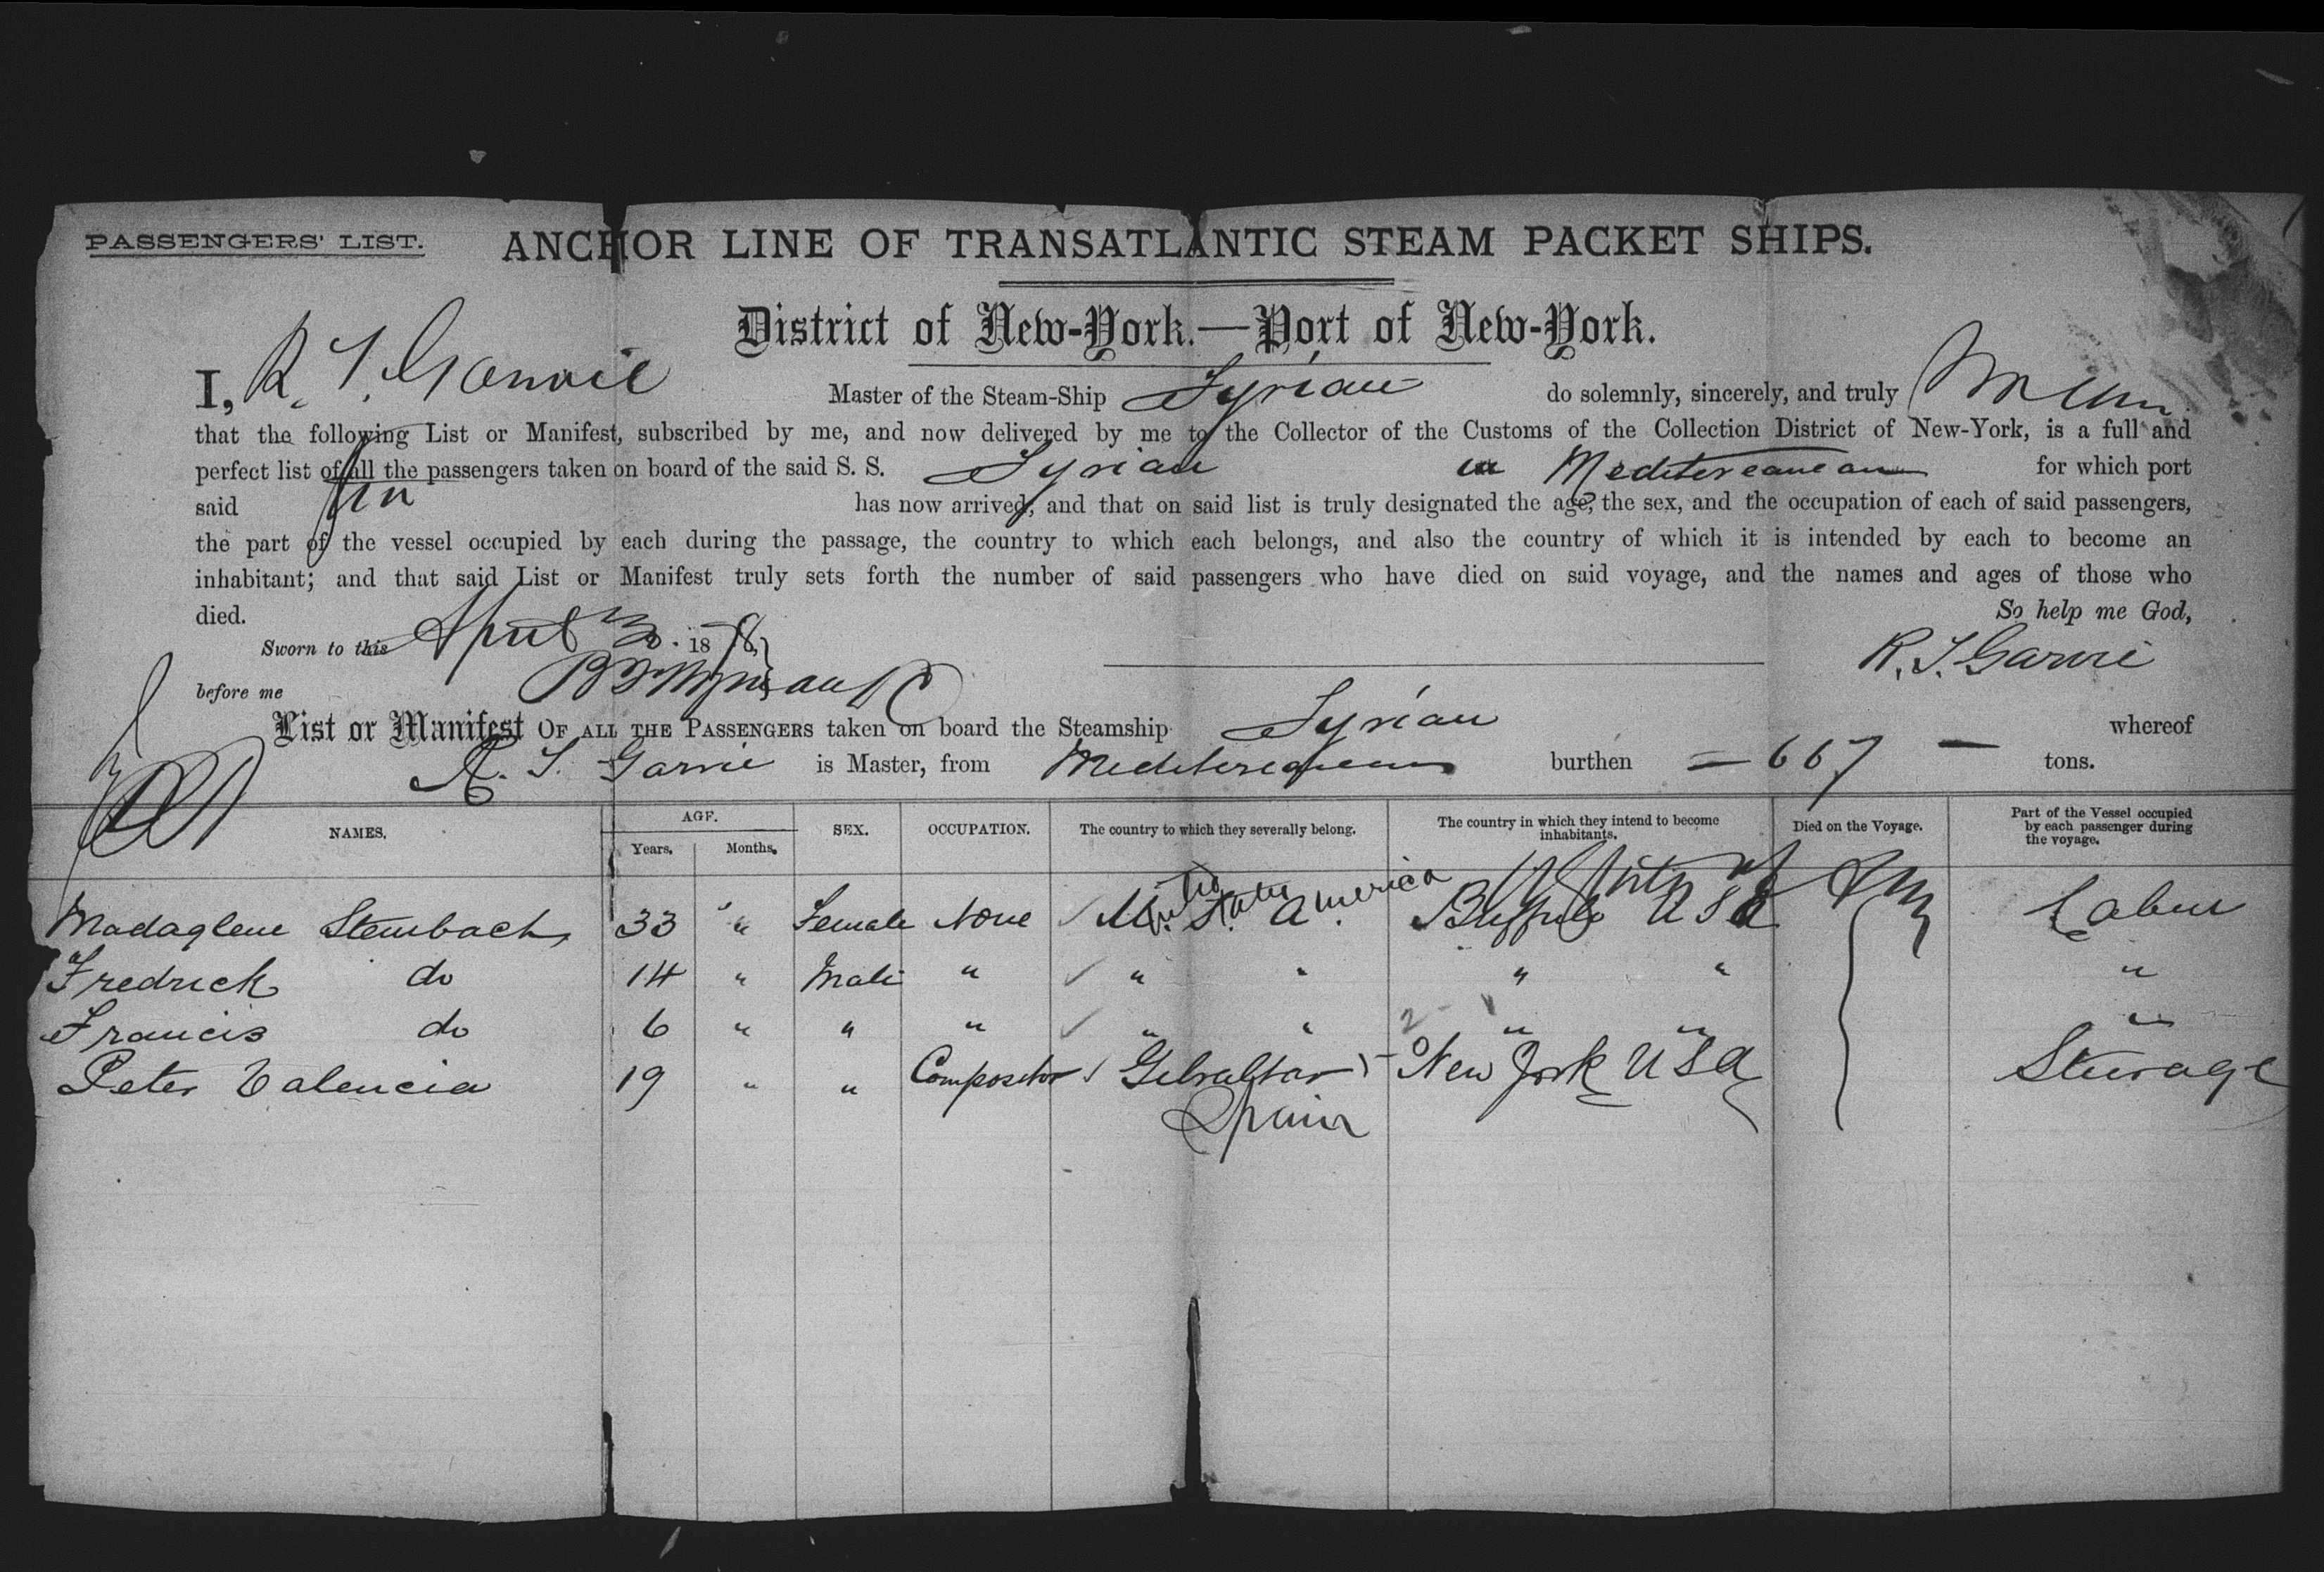 PASSENGERS' LIST.
ANCHOR LINE OF TRANSATLANTIC STEAM PACKET SHIPS.
District of New-York.—Port of New-York.
I, R. S. Garvie Master of the Steam-Ship Syrian do solemnly, sincerely, and truly
that the following List or Manifest, subscribed by me, and now delivered by me to the Collector of the Customs of the Collection District of New-York, is a full and
perfect list of all the passengers taken on board of the said S. S. Syrian in Mediterranean for which port
said has now arrived; and that on said list is truly designated the age, the sex, and the occupation of each of said passengers,
the part of the vessel occupied by each during the passage, the country to which each belongs, and also the country of which it is intended by each to become an
inhabitant; and that said List or Manifest truly sets forth the number of said passengers who have died on said voyage, and the names and ages of those who
died. So help me God,
Sworn to this April 1878, R. S. Garvie
before me
List or Manifest OF ALL THE PASSENGERS taken on board the Steamship Syrian whereof
R. S. Garvie is Master, from Mediterranean burthen = 667 — tons.
NAMES. AGE. Years. Months. SEX. OCCUPATION. The country to which they severally belong. The country in which they intend to become inhabitants. Died on the Voyage. Part of the Vessel occupied by each passenger during the voyage.
Madaglene Steinbach 33 " Female None America Buffalo USA Cabin
Fredrick do 14 " Male " " " " " "
Francis do 6 " " " " " " " "
Peter Valencia 19 " " Compositor Gibraltar New York USA Steerage
Spain